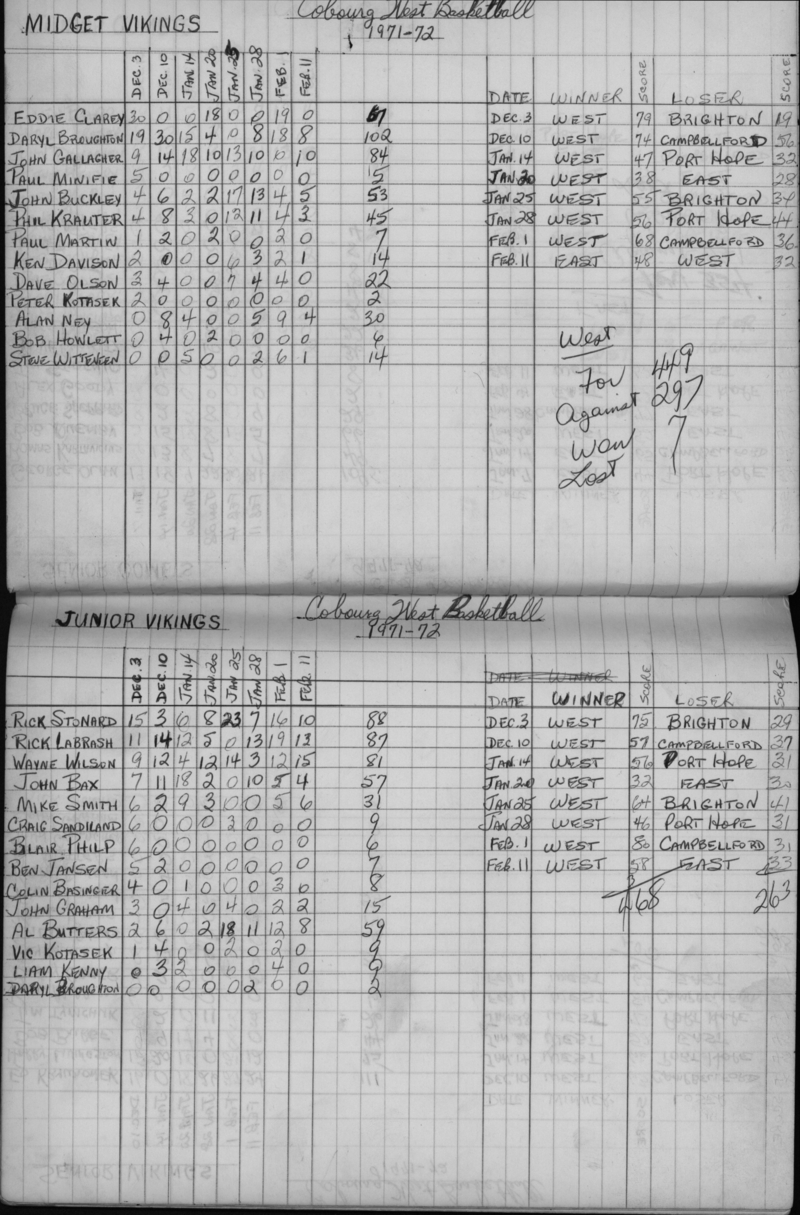 MIDGET VIKINGS Cobourg West Basketball
1971-72
DEC. 3 DEC. 10 JAN 14 JAN 20 JAN. 25 JAN. 28 FEB. 1 FEB. 11 DATE WINNER SCORE LOSER SCORE
EDDIE CLAREY 30 0 0 18 0 0 19 0 67 DEC. 3 WEST 79 BRIGHTON 19
DARYL BROUGHTON 19 30 15 4 0 8 18 8 102 DEC. 10 WEST 74 CAMPBELLFORD 56
JOHN GALLAGHER 9 14 18 10 13 10 0 10 84 JAN. 14 WEST 47 PORT HOPE 32
PAUL MINIFIE 5 0 0 0 0 0 0 0 5 JAN 20 WEST 38 EAST 28
JOHN BUCKLEY 4 6 2 2 17 13 4 5 53 JAN 25 WEST 55 BRIGHTON 34
PHIL KRAUTER 4 8 3 0 12 11 4 3 45 JAN 28 WEST 56 PORT HOPE 44
PAUL MARTIN 1 2 0 2 0 0 2 0 7 FEB. 1 WEST 68 CAMPBELLFORD 36
KEN DAVISON 2 0 0 0 6 3 2 1 14 FEB. 11 EAST 48 WEST 32
DAVE OLSON 3 4 0 0 7 4 4 0 22
PETER KOTASEK 2 0 0 0 0 0 0 0 2
ALAN NEY 0 8 4 0 0 5 9 4 30
BOB HOWLETT 0 4 0 2 0 0 0 0 6
STEVE 0 0 5 0 0 2 6 1 14
West
For 449
Against 297
Won 7
Lost 1
JUNIOR VIKINGS Cobourg West Basketball
1971-72
DATE WINNER
DEC. 3 DEC. 10 JAN 14 JAN 20 JAN 25 JAN. 28 FEB. 1 FEB. 11 DATE WINNER SCORE LOSER SCORE
RICK STONARD 15 3 6 8 23 7 16 10 88 DEC. 3 WEST 75 BRIGHTON 29
RICK LABRASH 11 14 12 5 0 13 19 13 87 DEC. 10 WEST 57 CAMPBELLFORD 37
WAYNE WILSON 9 12 4 12 14 3 12 15 81 JAN. 14 WEST 56 PORT HOPE 31
JOHN BAX 7 11 18 2 0 10 5 4 57 JAN 20 WEST 32 EAST 30
MIKE SMITH 6 2 9 3 0 0 5 6 31 JAN 25 WEST 64 BRIGHTON 41
CRAIG SANDILAND 6 0 0 0 3 0 0 0 9 JAN 28 WEST 46 PORT HOPE 31
BLAIR PHILP 6 0 0 0 0 0 0 0 6 FEB. 1 WEST 80 CAMPBELLFORD 31
BEN JANSEN 5 2 0 0 0 0 0 0 7 FEB. 11 WEST 58 EAST 33
COLIN BASINGER 4 0 1 0 0 0 3 0 8 468 263
JOHN GRAHAM 3 0 4 0 4 0 2 2 15
AL BUTTERS 2 6 0 2 18 11 12 8 59
VIC KOTASEK 1 4 0 0 2 0 2 0 9
LIAM KENNY 0 3 2 0 0 0 4 0 9
DARYL BROUGHTON 0 0 0 0 0 2 0 0 2